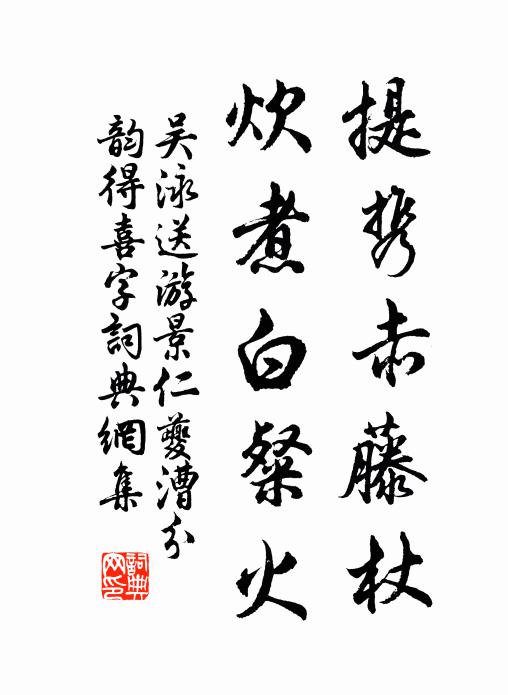 提携赤藤杖
炊煮白粲火
吴泳送游景仁夔漕分
韵得喜字詞典網集
詞典网印